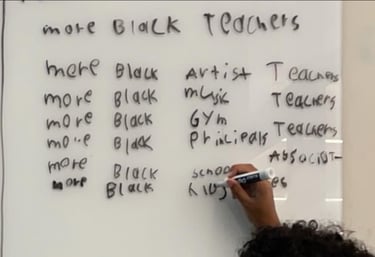 more BLACK TEACHERS
more BLACK Artist Teachers
more Black music Teachers
more Black Gym Teachers
more Black principals
more Black
more Black